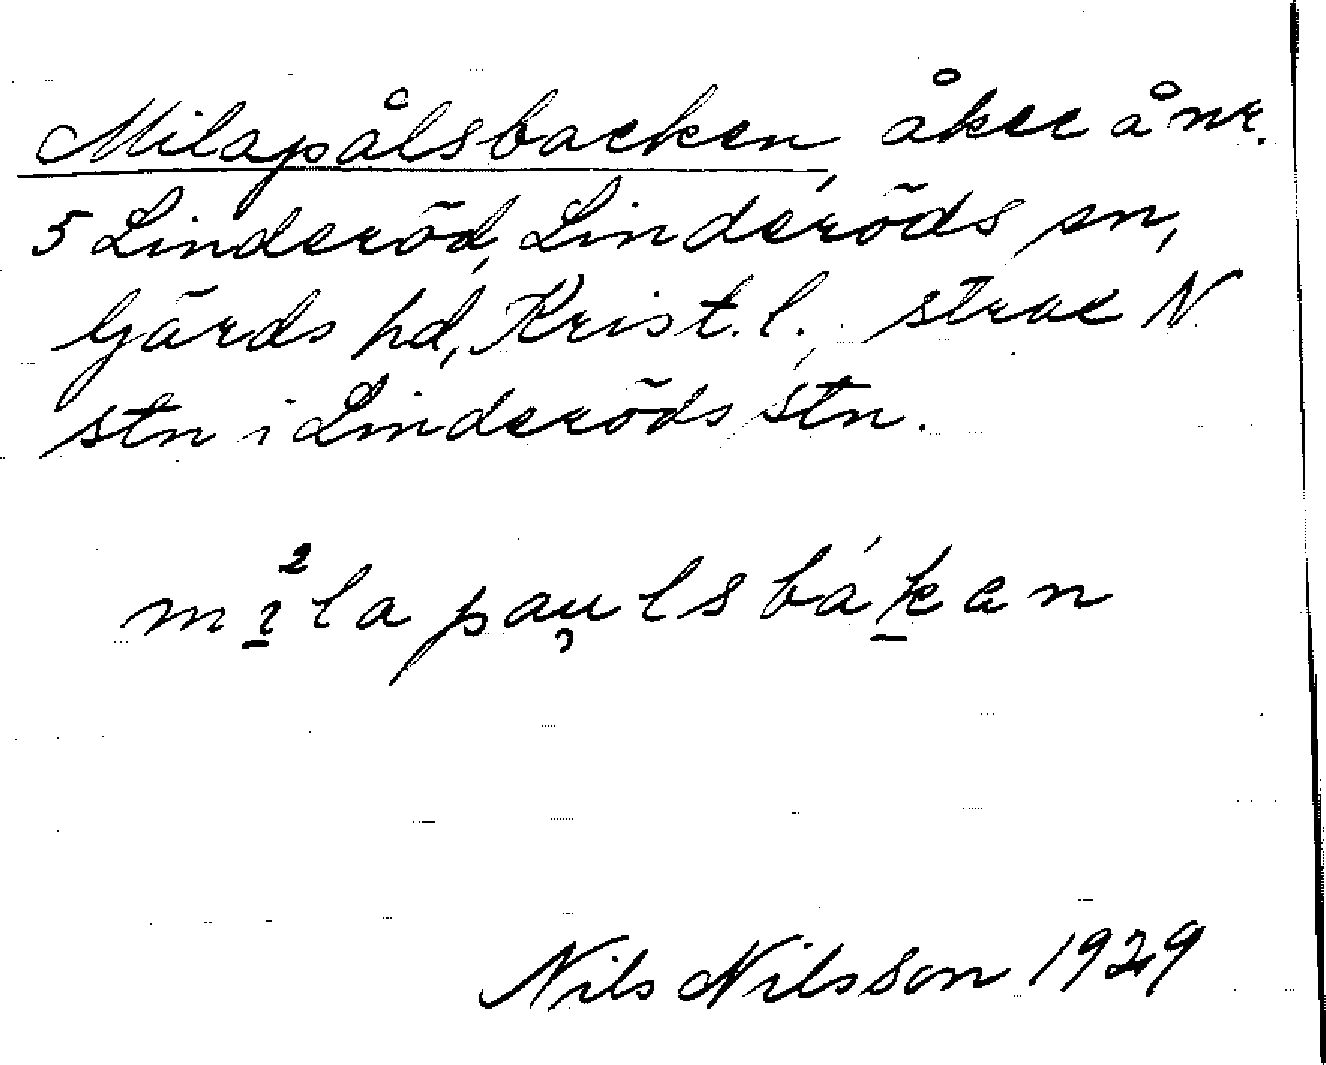 Milapålsbacken, åker å nr.
5 Linderöd, Linderöds sn,
Gärds hd, Krist. l., strax N
stn i Linderöds stn.
mı̱²lapau̡lsbák̠an
Nils Nilsson 1929